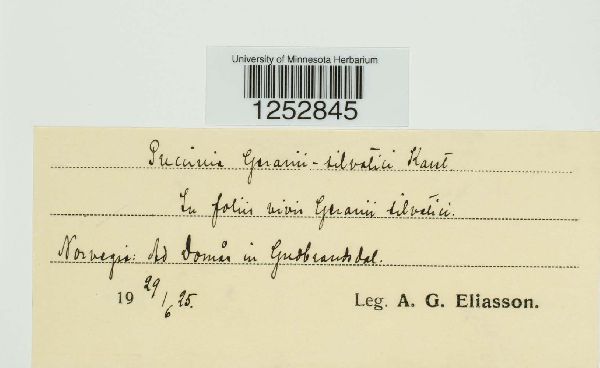 University of Minnesota Herbarium
1252845
Puccinia Geranii-silvatici Karst.
In foliis vivis Geranii silvatici.
Norvegia: Ad Domås in Gudbrandsdal.
19 29/6 25. Leg. A. G. Eliasson.